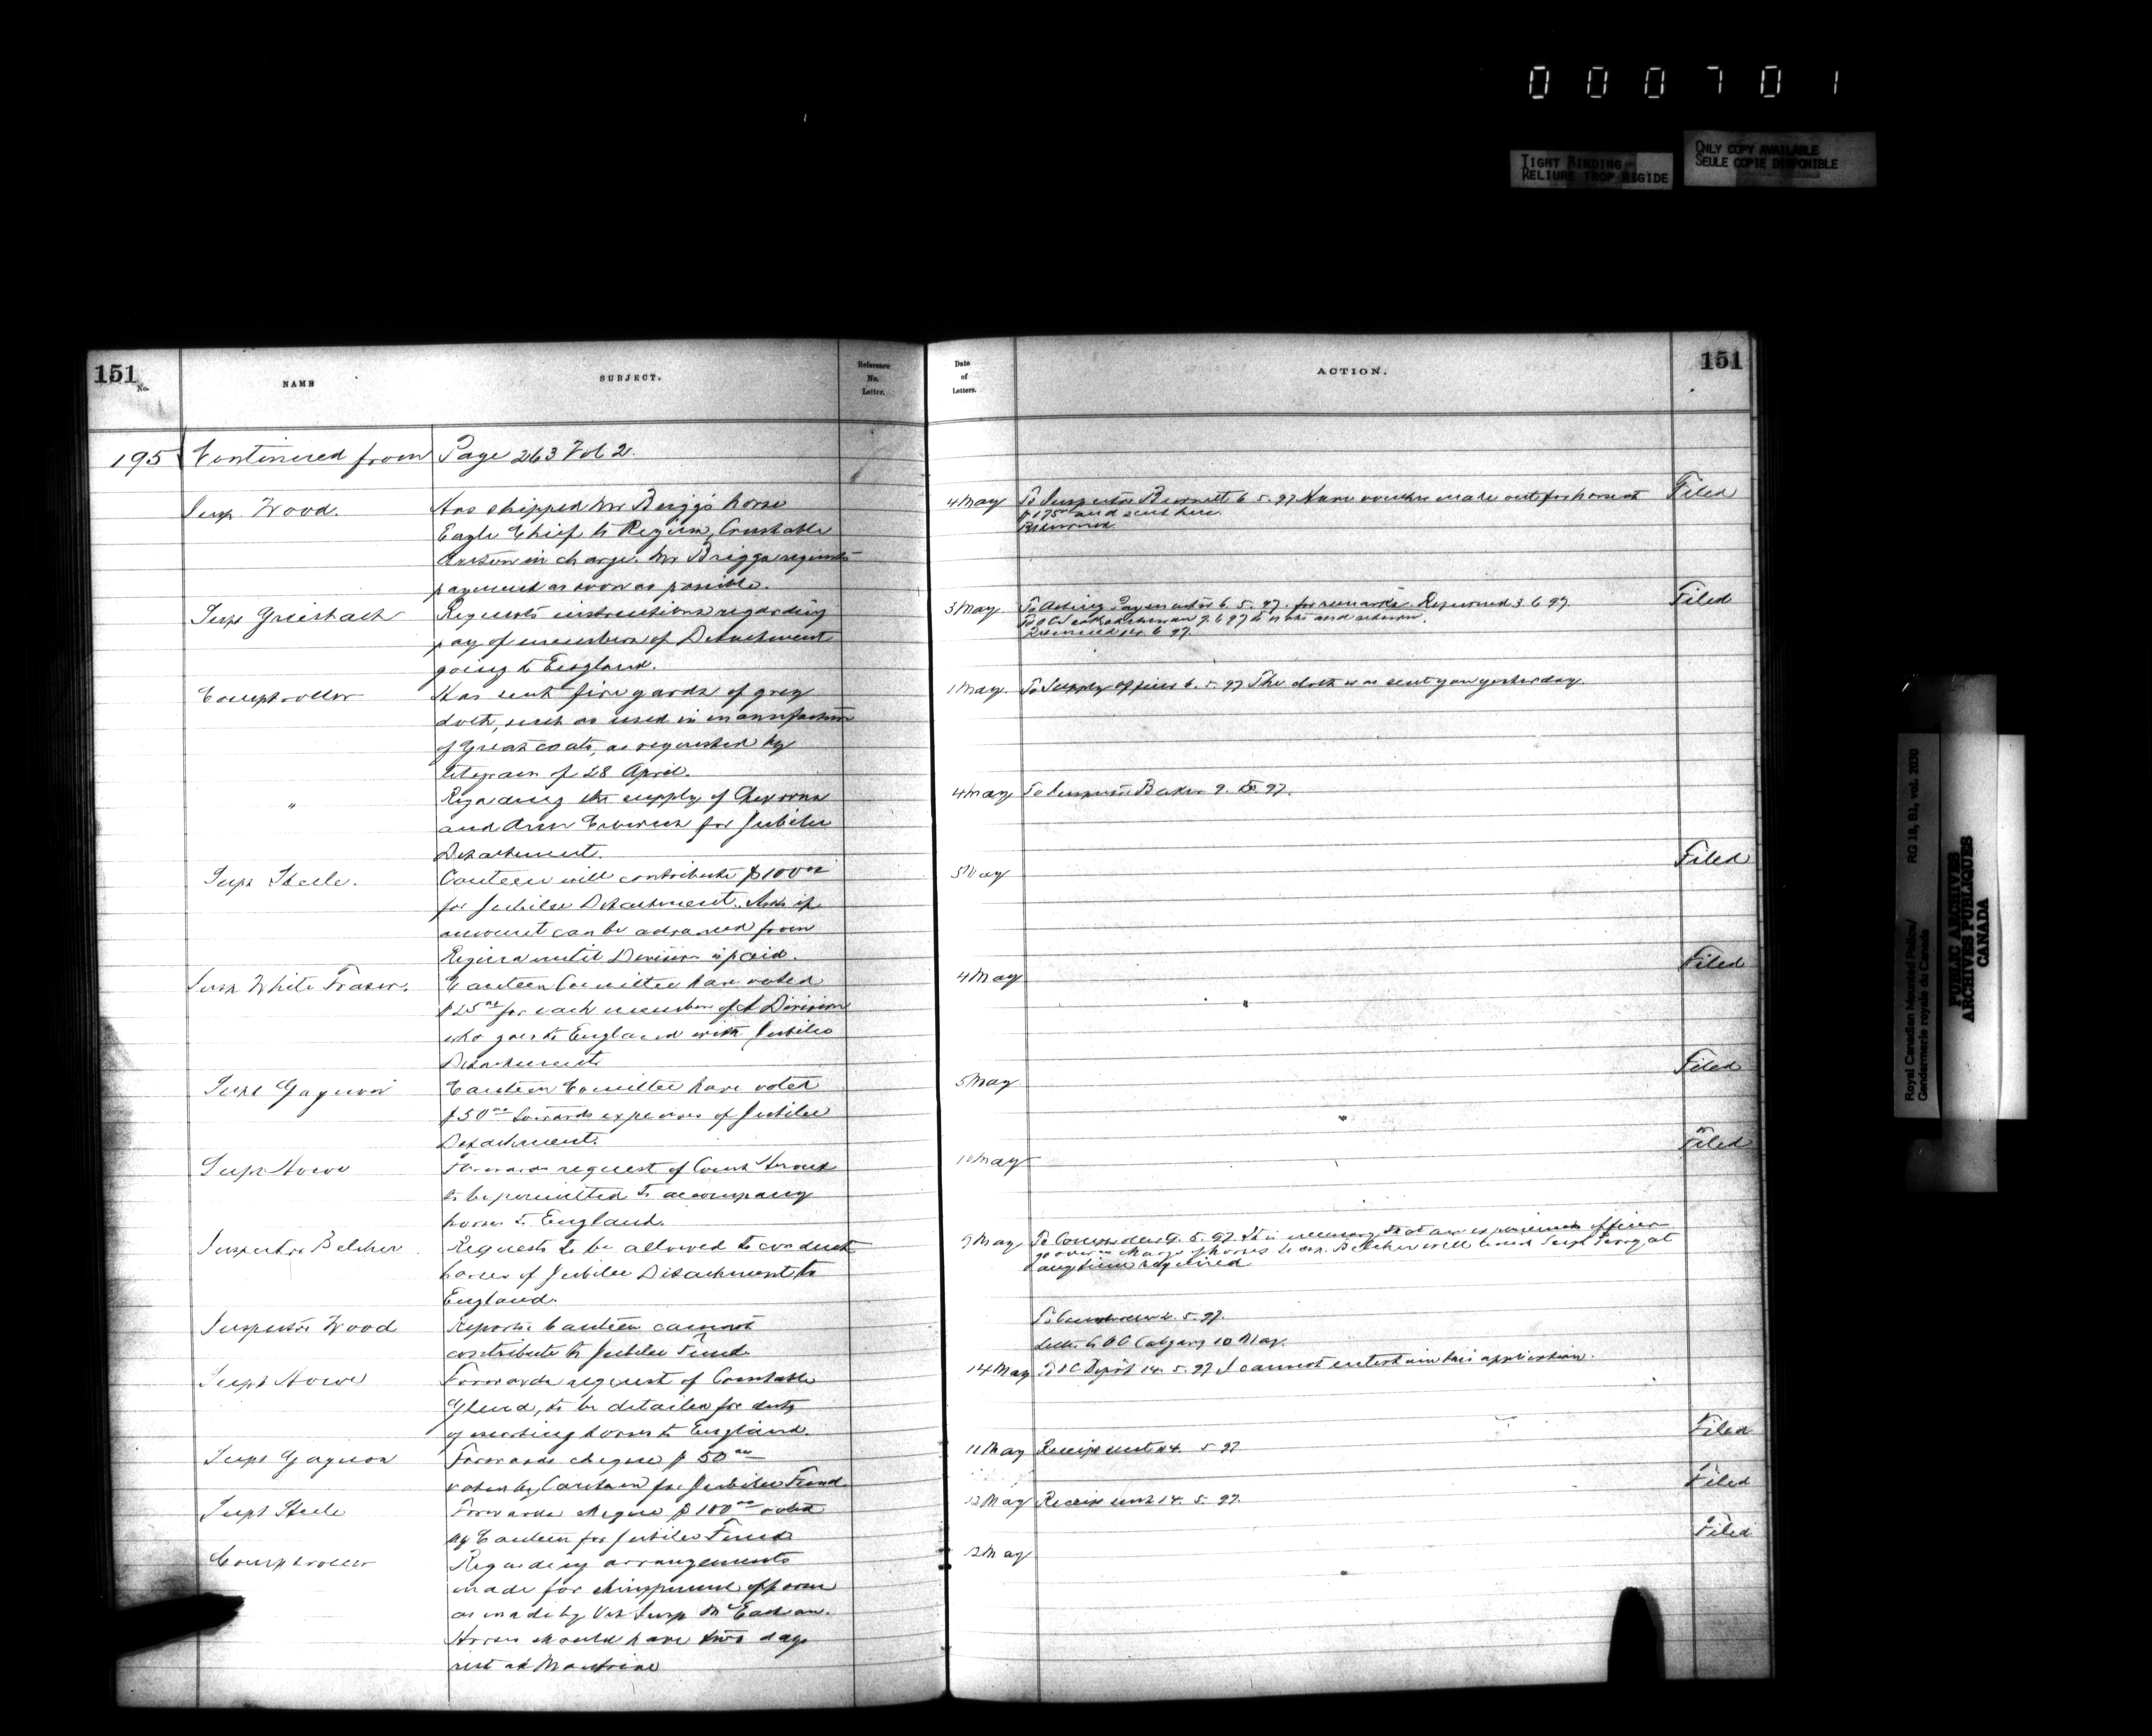 000701
TIGHT BINDING
RELIURE TROP RIGIDE
ONLY COPY AVAILABLE
SEULE COPIE DISPONIBLE
151
No.
NAME
SUBJECT.
Reference
No.
Letter.
Date
of
Letters.
ACTION.
151
195 Continued from Page 263 Vol 2.
Insp. Wood.
Has shipped Mr Briggs horse
Eagle Chief to Regina, Constable
in charge. Mr Briggs requests
payment as soon as possible.
4 May
To Inspector 6.5.97 Have voucher made out for horse at
$175 00 and sent here.
Returned
Filed
Supt Griesbach
Requests instructions regarding
pay of members of Detachment
going to England.
3 May
To Acting Paymaster 6.5.97. for remarks. Returned 3.6.97.
to note and return.
Returned 14.6.97.
Filed
Comptroller
Has sent five yards of grey
cloth, such as used in manufacture
of Great coats, as requested by
telegram of 28 April.
1 May
To Supply Officer 6.5.97 The cloth was sent you yesterday.
"
Regarding the supply of Chevrons
and Arm for Jubilee
Detachment.
4 May
To Inspector Baker
Supt Steele.
Canteen will contribute $100 00
for Jubilee Detachment. Asks if
amount can be advanced from
Regina until Division is paid.
5 May
Filed
Insp White Fraser.
Canteen Committee have voted
$25 00 for each member of A Division
who goes to England with Jubilee
Detachment
4 May
Filed
Supt Gagnon
Canteen Committee have voted
$50 00 towards expenses of Jubilee
Detachment.
5 May
Filed
Supt Howe
Forwards request of Const
to be permitted to accompany
horses to England.
10 May
Filed
Inspector Belcher.
Requests to be allowed to conduct
horses of Jubilee Detachment to
England.
9 May
To Comptroller 9.5.97. It is necessary that an experienced officer
go over in charge of horses. Insp. Belcher will Supt Perry at
any time required
Inspector Wood
Reports Canteen cannot
contribute to Jubilee Fund
To 5.97.
Letter to OC Calgary 10 May.
Supt Howe
Forwards request of Constable
to be detailed for duty
of horses to England.
14 May
To OC Depot 14.5.97 I cannot entertain this application.
Supt Gagnon
Forwards cheque $50 00
voted by Canteen for Jubilee Fund
11 May
Receipt sent 14.5.97
Filed
Supt Steele
Forwards cheque $100 00 voted
by Canteen for Jubilee Fund
12 May
Receipt sent 14.5.97.
Filed
Comptroller
Regarding arrangements
made for shipment of horses
as made by Vet Insp McEachran.
Horses should have two days
rest at Montreal
12 May
Filed
Royal Canadian Mounted Police/
Gendarmerie royale du Canada
RG 18, B1, vol. 2030
PUBLIC ARCHIVES
ARCHIVES PUBLIQUES
CANADA